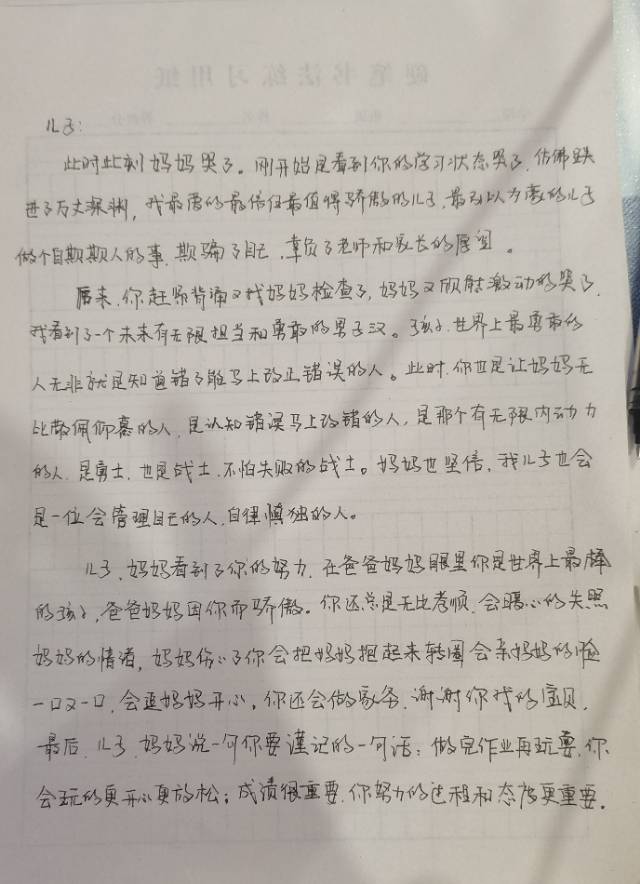 硬笔书法练习用纸
儿子:
此时此刻妈妈哭了。刚开始是看到你的学习状态哭了,仿佛跌
进了万丈深渊,我最爱的最信任最值得骄傲的儿子,最引以为豪的儿子
做个自欺欺人的事,欺骗了自己,辜负了老师和家长的厚望。
后来,你赶紧背诵又找妈妈检查了,妈妈又欣慰激动的哭了,
我看到了一个未来有无限担当和勇敢的男子汉。孩子,世界上最勇敢的
人无非就是知道错了能马上改正错误的人。此时,你也是让妈妈无
比敬佩仰慕的人,是认知错误马上改错的人,是那个有无限内动力
的人,是勇士,也是战士,不怕失败的战士。妈妈也坚信,我儿子也会
是一位会管理自己的人,自律慎独的人。
儿子,妈妈看到了你的努力,在爸爸妈妈眼里你是世界上最棒
的孩子,爸爸妈妈因你而骄傲。你还总是无比孝顺,会暖心的关照
妈妈的情绪,妈妈伤心了你会把妈妈抱起来转圈会亲妈妈的脸
一口又一口,会逗妈妈开心,你还会做家务,谢谢你我的宝贝,
最后,儿子,妈妈说一句你要谨记的一句话:做完作业再玩耍,你
会玩的更开心更放松;成绩很重要,你努力的过程和态度更重要。